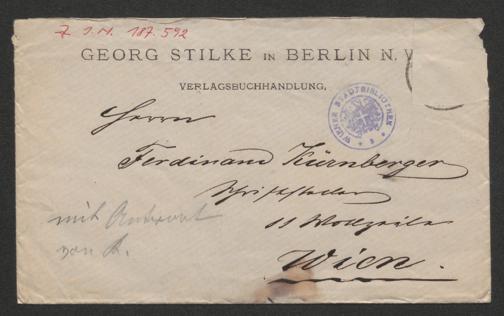 Z J.N. 187.592
GEORG STILKE IN BERLIN N.W
VERLAGSBUCHHANDLUNG,
WIENER STADTBIBLIOTHEK
Herrn
Ferdinand Kürnberger
Schriftsteller
11 Wollzeile
Wien.
mit Antwort
von K.